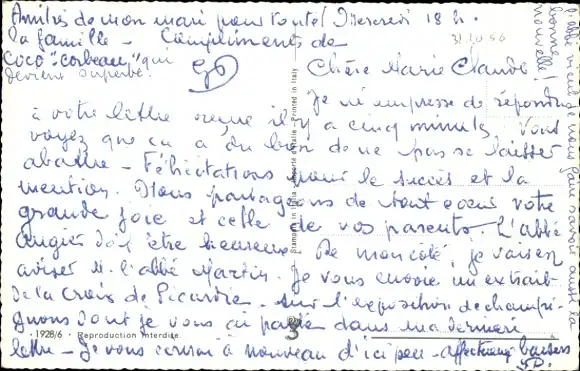 Mercredi 18 h.
31.10.56
Chère Marie Claude
Je m'empresse de répondre
à votre lettre reçue il y a cinq minutes. Vous
voyez que ça a du bon de ne pas se laisser
abattre - Félicitations pour le succès et la
mention. Nous partageons de tout coeur votre
grande joie et celle de vos parents. L'abbé
Augier doit être heureux. De mon côté, je vais en
aviser M. l'abbé Martin. Je vous envoie un extrait
de la Croix de Picardie - sur l'exposition de champi-
gnons dont je vous ai parlé dans ma dernière
lettre - Je vous écrirai à nouveau d'ici peu - affectueux baisers
Amitiés de mon mari pour toute
la famille - Compliments de
Coco "corbeau" qui
devient superbe.
l'abbé vient de nous faire savoir aussi la
bonne
nouvelle!
Printed in Italy
1928/6 - Reproduction interdite
3